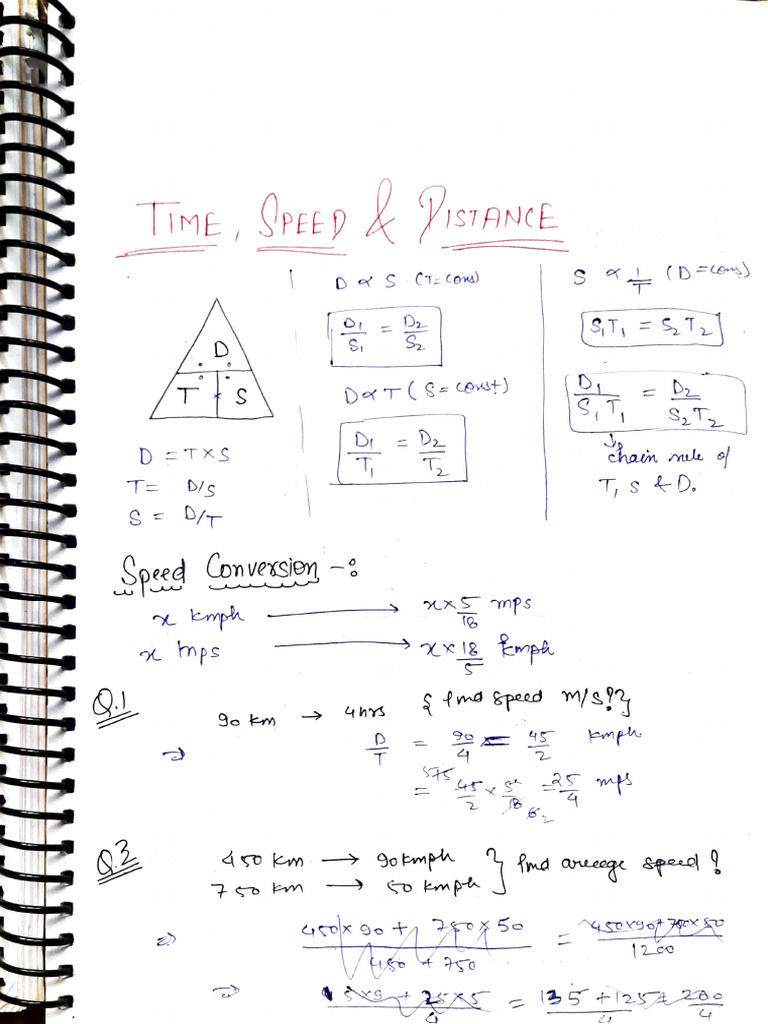 TIME, SPEED & DISTANCE
D
T S
D = T × S
T = D/S
S = D/T
D ∝ S (T = cons)
D1/S1 = D2/S2
D ∝ T (S = const)
D1/T1 = D2/T2
S ∝ 1/T (D = cons)
S1T1 = S2T2
D1/S1T1 = D2/S2T2
chain rule of
T, S & D.
Speed Conversion -:
x kmph → x × 5/18 mps
x mps → x × 18/5 kmph
Q.1
90 km → 4hrs { find speed m/s?}
⇒ D/T = 90/4 = 45/2 kmph
= 45/2 × 5/18 = 25/4 mps
Q.2
450 km → 90 kmph } find average speed?
750 km → 50 kmph
⇒ 450×90 + 750×50 / 450 + 750 = 450×90+750×50 / 1200